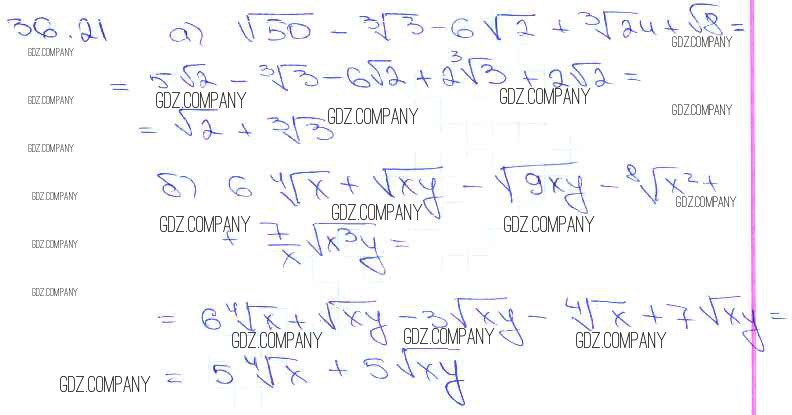 36.21 а) √50 − ∛3 − 6√2 + ∛24 + √8 =
GDZ.COMPANY GDZ.COMPANY
= 5√2 − ∛3 − 6√2 + 2∛3 + 2√2 =
GDZ.COMPANY GDZ.COMPANY GDZ.COMPANY
= √2 + ∛3 GDZ.COMPANY GDZ.COMPANY
GDZ.COMPANY
б) 6 ∜x + √xy − √9xy − ⁸√x² +
GDZ.COMPANY GDZ.COMPANY GDZ.COMPANY GDZ.COMPANY GDZ.COMPANY
+ 7/x √x³y =
GDZ.COMPANY
GDZ.COMPANY
= 6∜x + √xy − 3√xy − ∜x + 7√xy =
GDZ.COMPANY GDZ.COMPANY GDZ.COMPANY
= 5∜x + 5√xy
GDZ.COMPANY